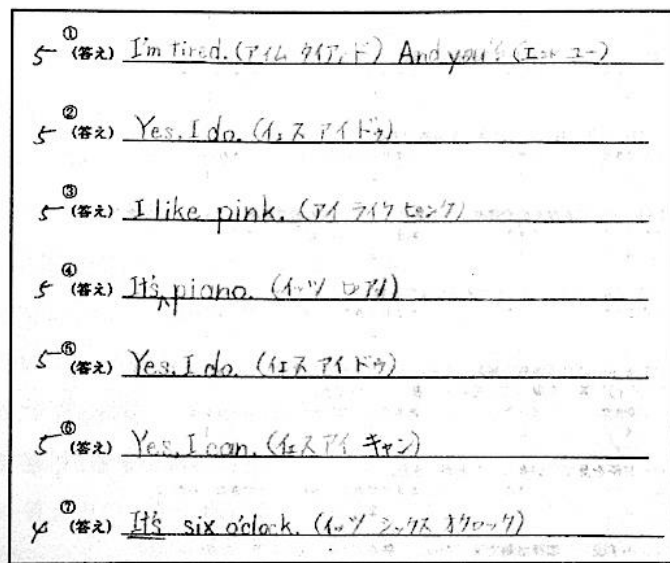 5 ①(答え) I'm tired. (アイム タイアード) And you? (エンド ユー)
5 ②(答え) Yes, I do. (イェス アイ ドゥ)
5 ③(答え) I like pink. (アイ ライク ピンク)
5 ④(答え) It's piano. (イッツ ピアノ)
5 ⑤(答え) Yes, I do. (イエス アイ ドゥ)
5 ⑥(答え) Yes, I can. (イエス アイ キャン)
4 ⑦(答え) It's six o'clock. (イッツ シックス オクロック)